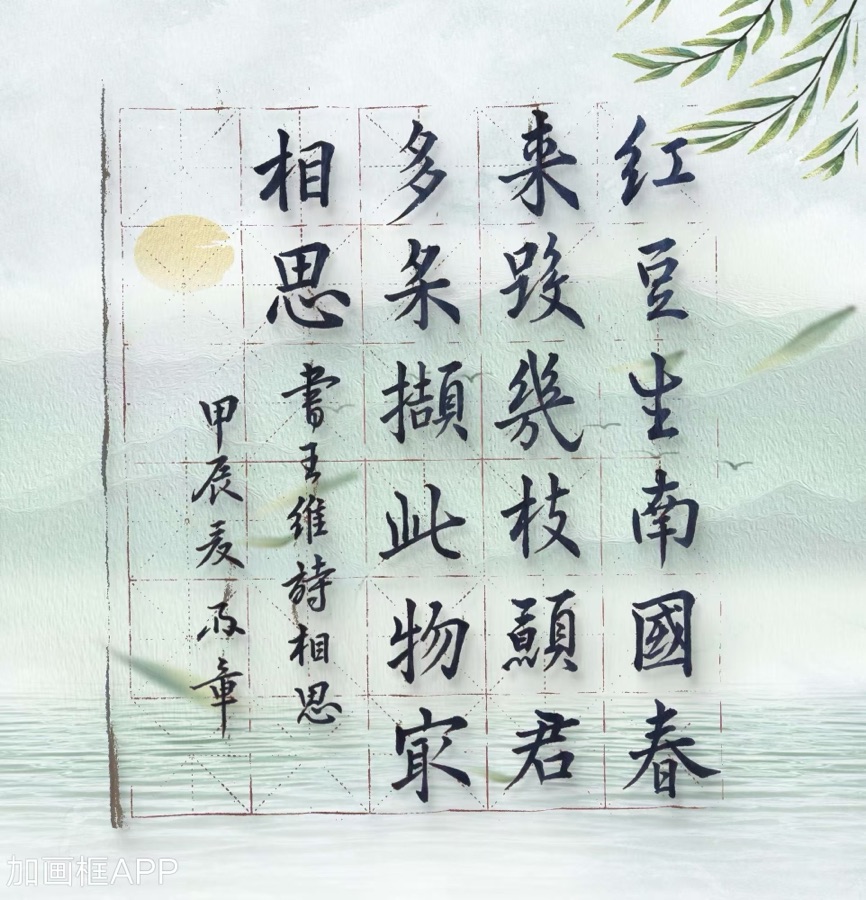 红豆生南國春
来發幾枝願君
多采擷此物最
相思
書王維詩相思
甲辰夏 章